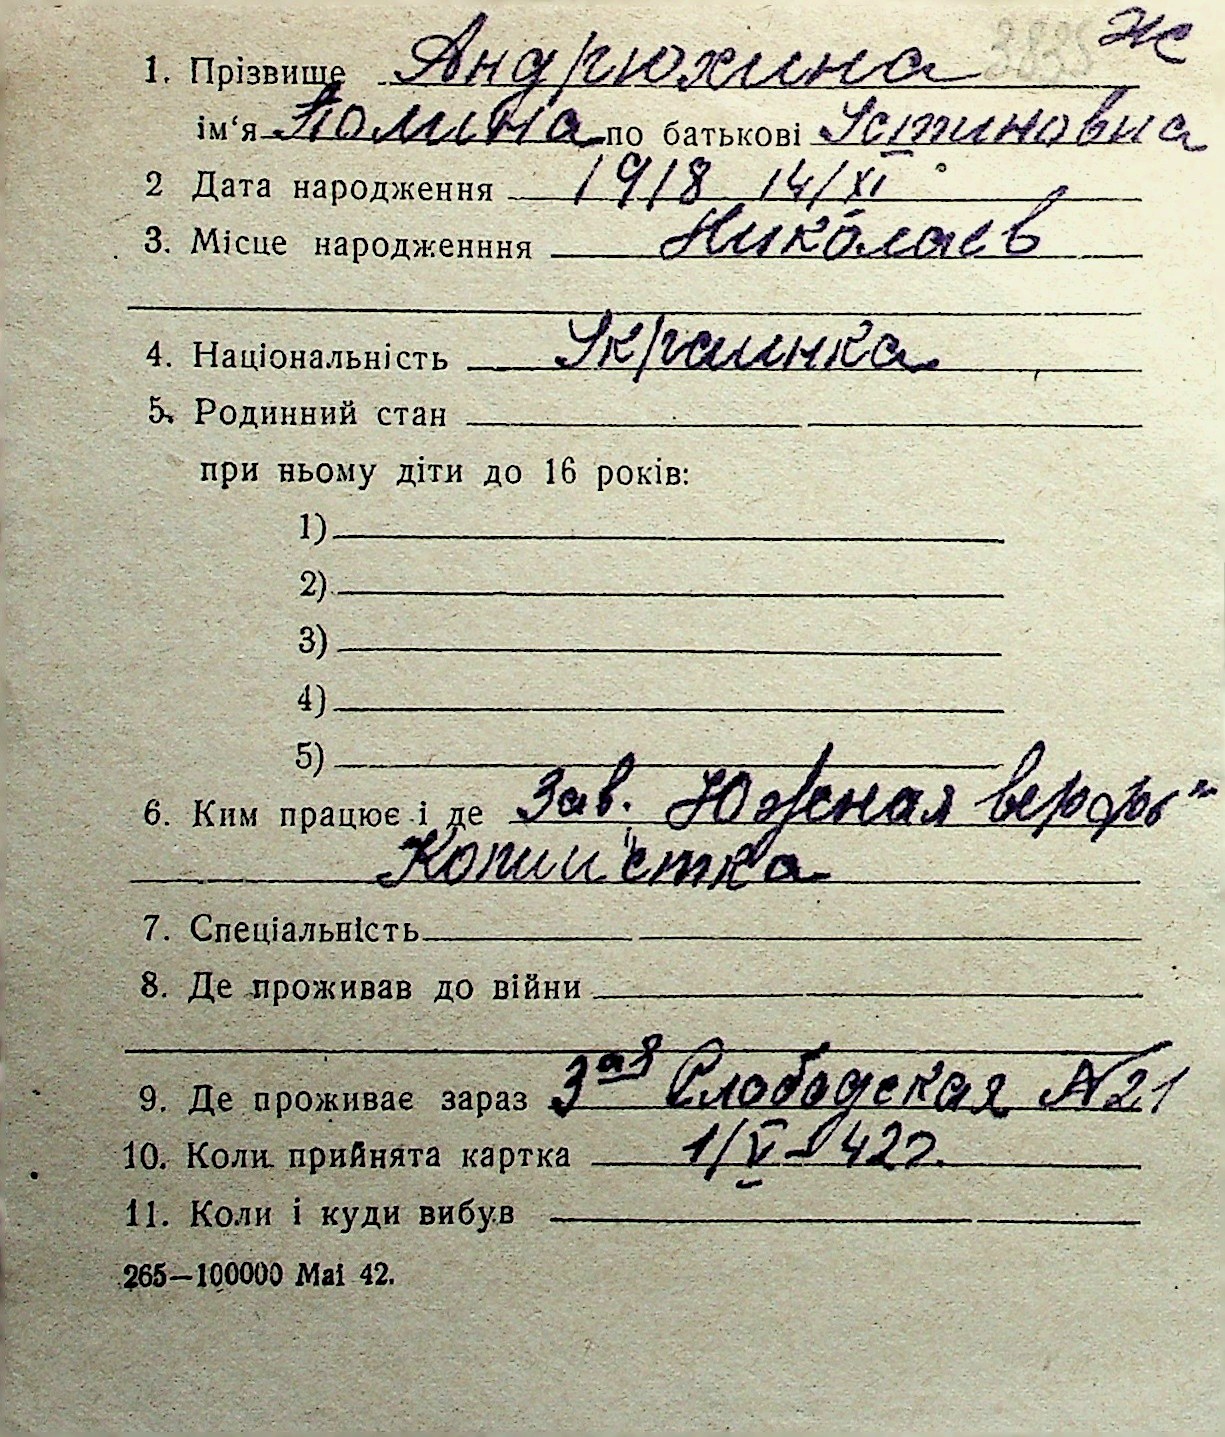 3835 ж
1. Прізвище Андрюхина
ім‘я Полина по батькові Устиновна
2 Дата народження 1918 14/XI
3. Місце народженння Николаев
4. Національність Украинка
5. Родинний стан
при ньому діти до 16 років:
1)
2)
3)
4)
5)
6. Ким працює і де Зав. „Южная верфь"
Копиистка
7. Спеціальність
8. Де проживав до війни
9. Де проживає зараз 3ая Слободская № 21
10. Коли прийнята картка 1/V-42г.
11. Коли і куди вибув
265—100000 Mai 42.